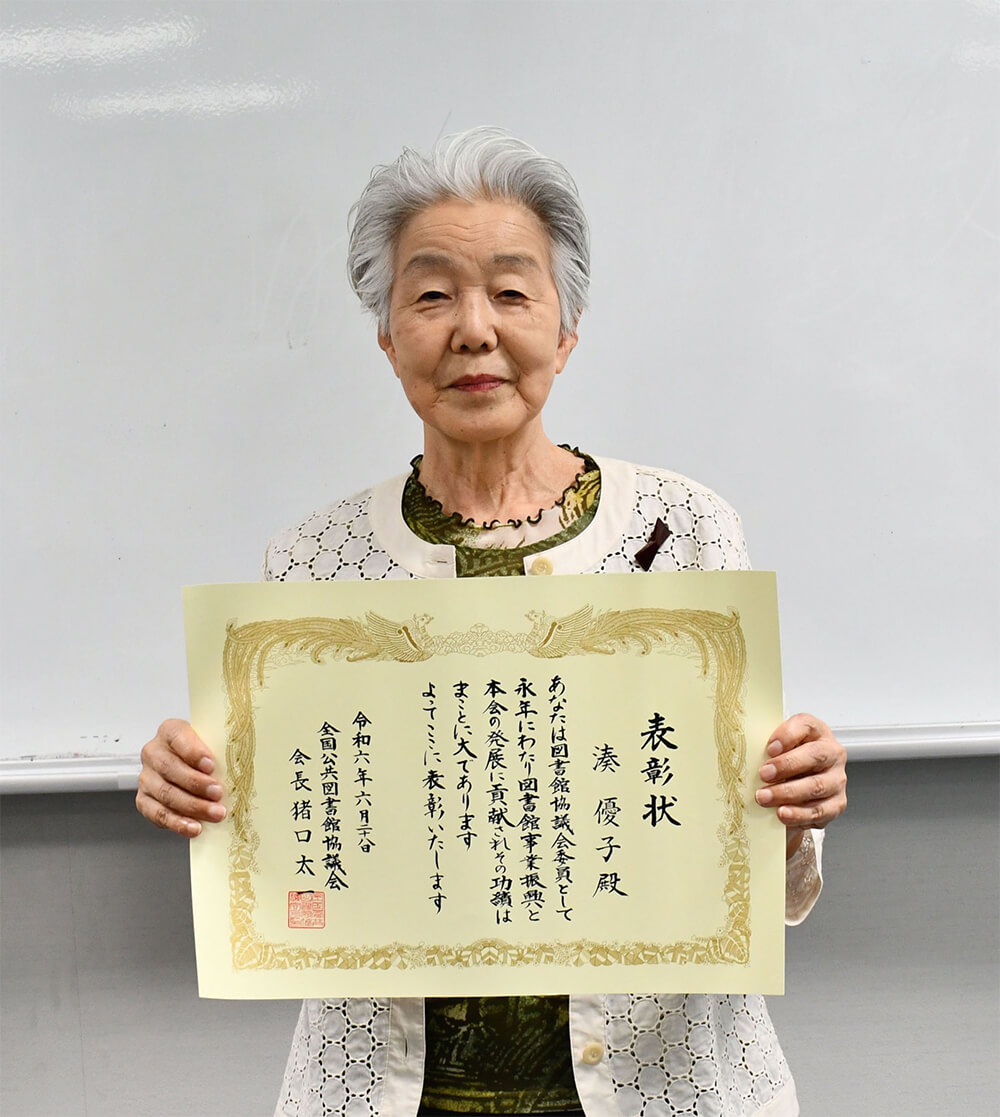 表彰状
湊 優子殿
あなたは図書館協議会委員として
永年にわたり図書館事業振興と
本会の発展に貢献されその功績は
まことに大であります
よってここに表彰いたします
令和六年六月二十八日
全国公共図書館協議会
会長猪口太一